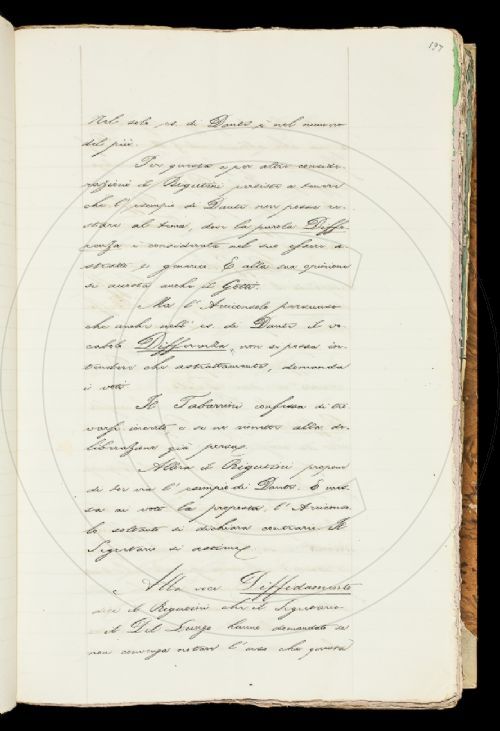 197
Nel solo es. di Dante è nel numero
del più.
Per questa e per altre conside-
razioni il Rigutini persiste a tenere
che l'esempio di Dante non possa re-
stare al tema, dove la parola Diffe-
renza è considerata nel suo essere a-
stratto e generico. E alla sua opinione
si accosta anche il Gotti.
Ma l'Arcionsolo persuaso
che anche nell'es. di Dante il vo-
cabolo Differenza, non si possa in-
tendere che astrattamente, domanda
i voti.
Il Tabarrini confessa di tro-
varsi incerto e se ne rimette alla de-
liberazione già presa.
Allora il Rigutini propone
di tor via l'esempio di Dante. E mes-
sa ai voti la proposta, l'Arcionso-
lo soltanto si dichiara contrario. Il
Segretario si astiene.
Alla voce Diffidamento
dice il Rigutini che il Segretario
il Del Lungo hanno domandato se
non convenga notare l'uso che questa